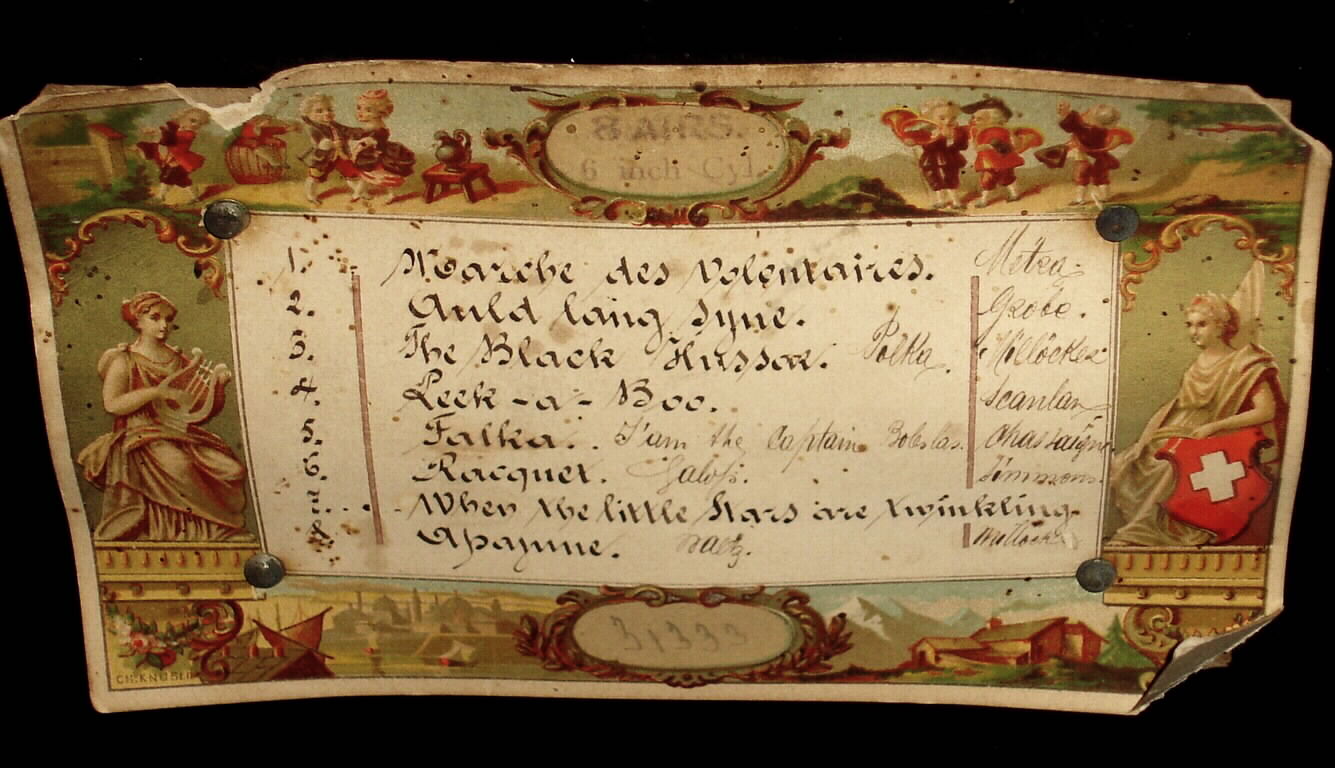 8 AIRS.
6 inch Cyl.
1. Marche des Volontaires. Métra
2. Auld lang syne. Grobe.
3. The Black Hussar. Polka. Millöcker
4. Peek-a-Boo. Scanlan
5. Falka. I'am the Captain Chassaigne
6. Racquet. Galop. Simmons.
7. When the little Stars are twinkling.
8. Apajune. Waltz. Millöcker
31333